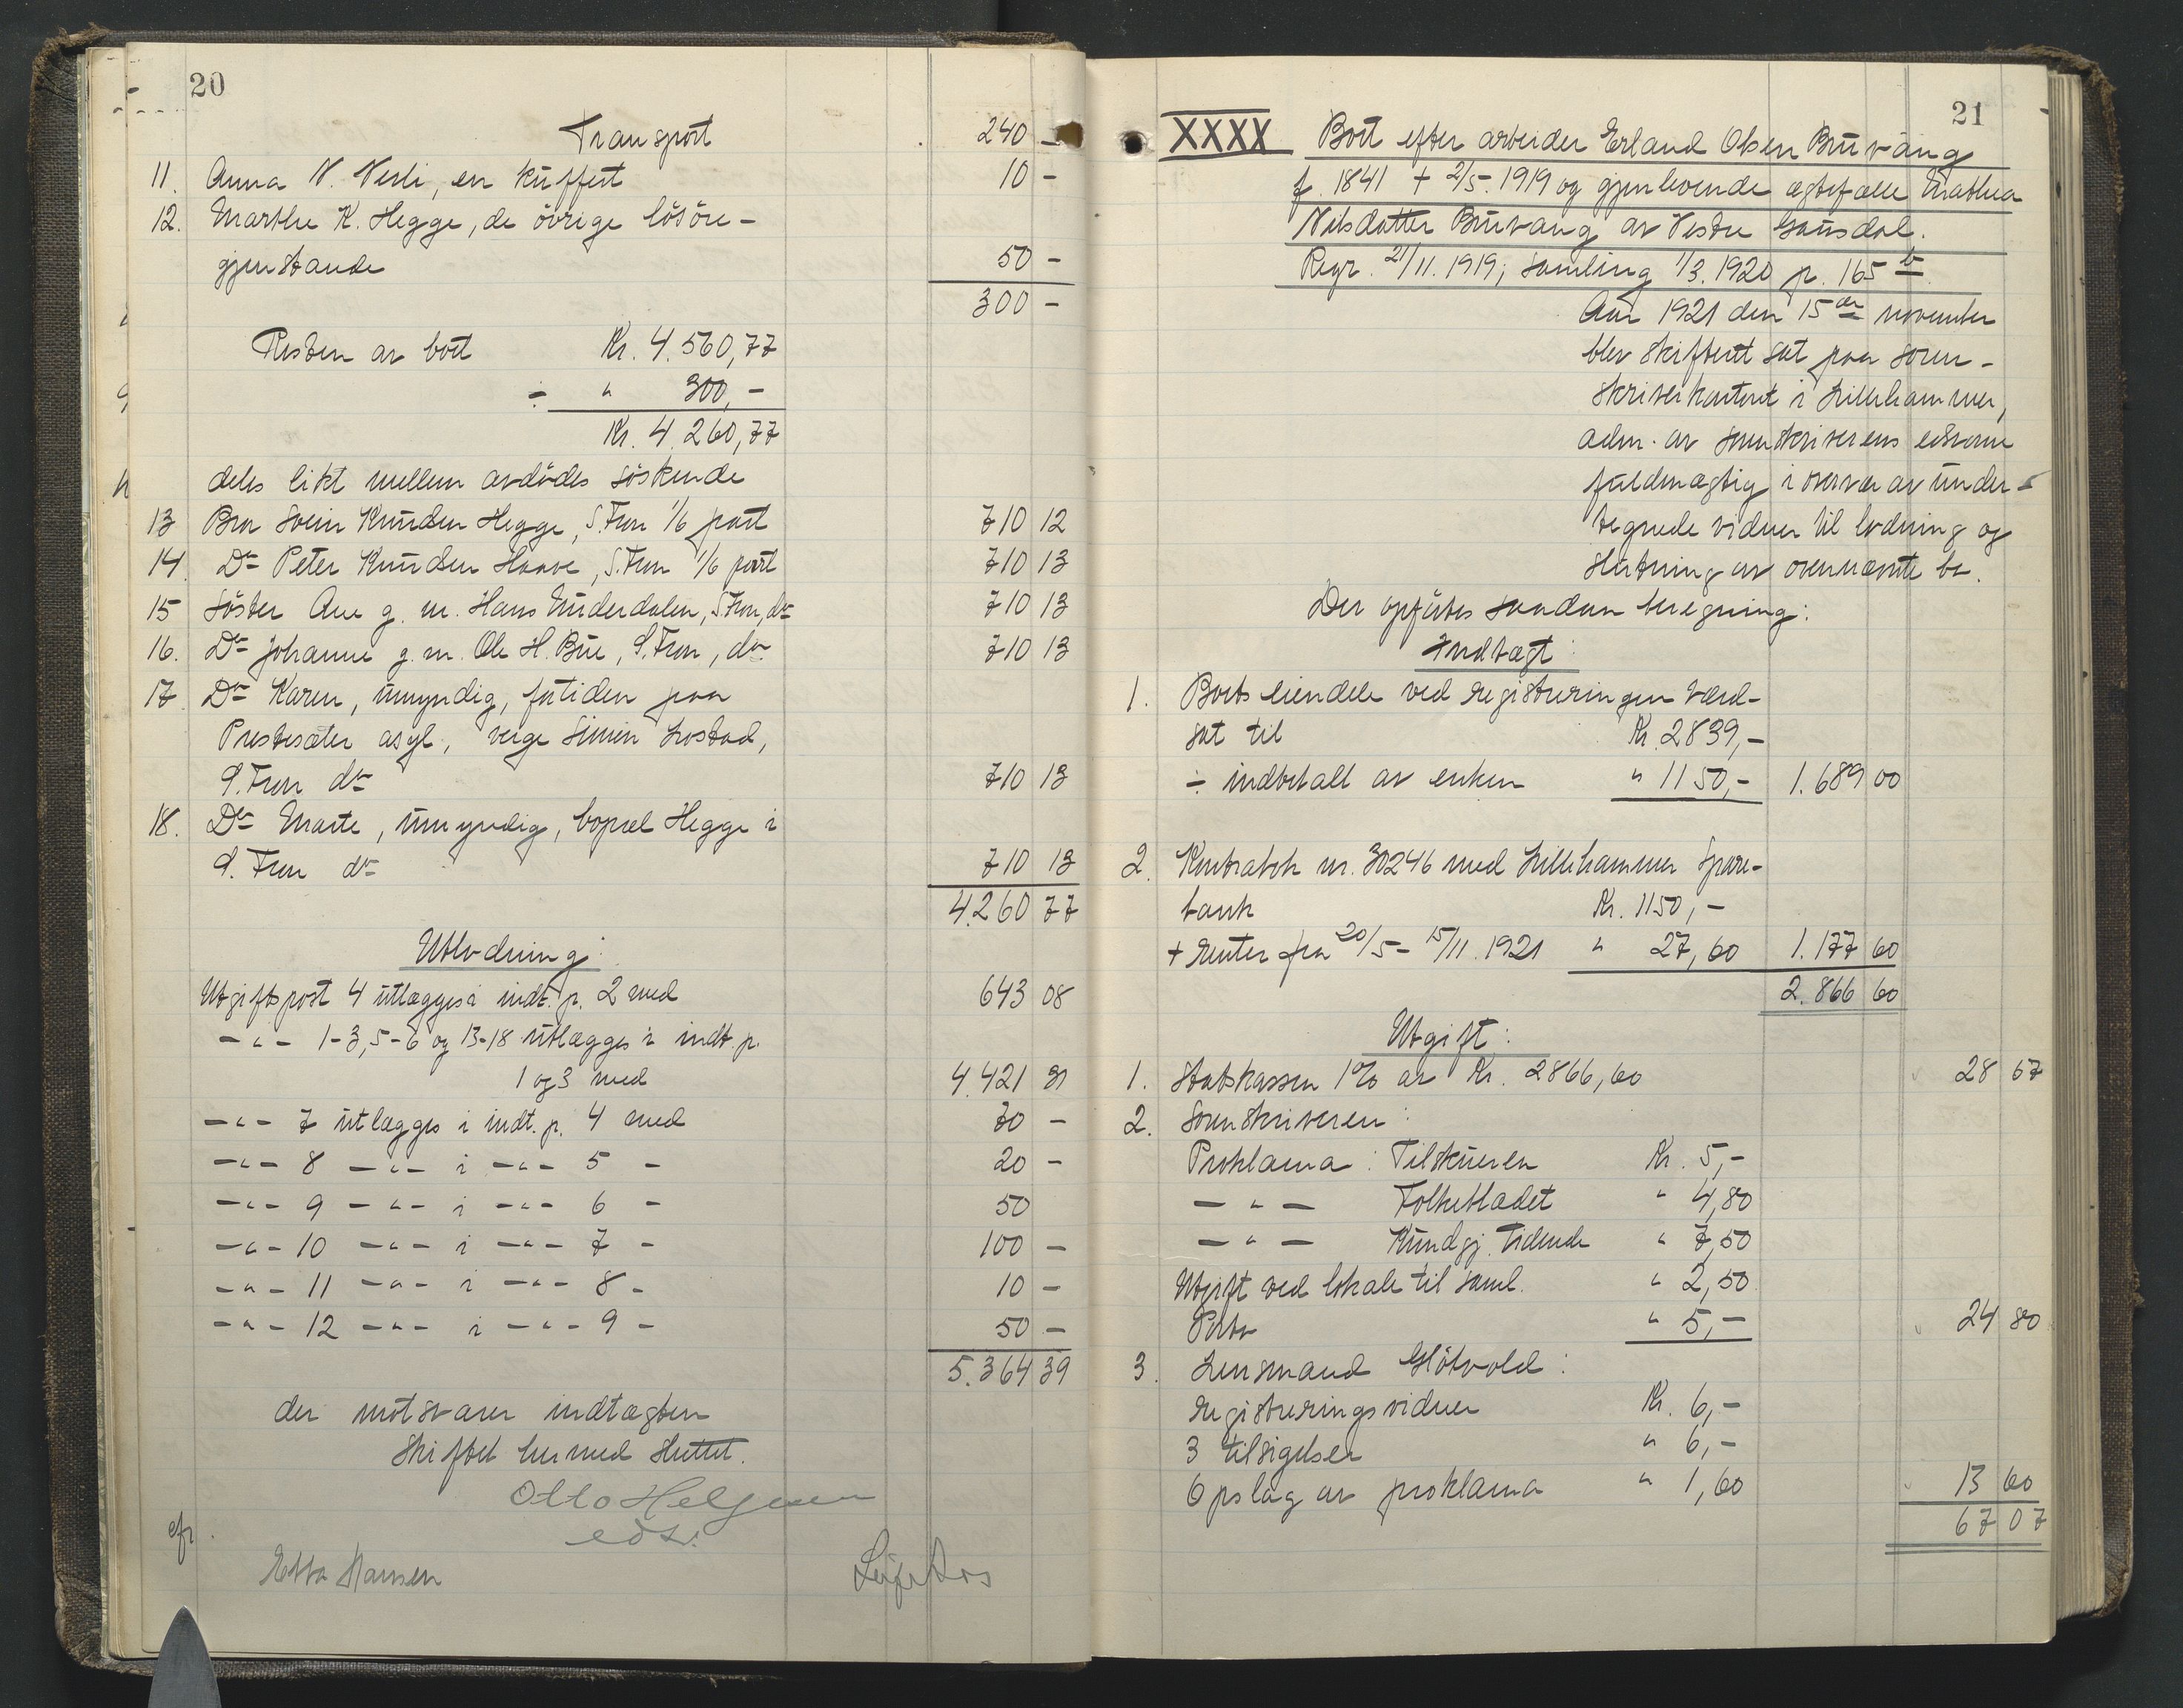 20
Transport 240 -
11. Anna N. Nerli, en kuffert 10 -
12. Marthe K. Hegge, de övrige lösöre-
gjenstande 50 -
300 -
Resten av boet Kr. 4.560,77
÷ " 300,-
Kr. 4.260,77
deles likt mellem avdödes söskende
13 Bror Svein Knudsen Hegge, S. Fron 1/6 part 710 12
14. Do Peter Knudsen Haave, S. Fron 1/6 part 710 13
15 Söster Ane g. m. Hans Underdalen, S. Fron, do 710 13
16. Do Johanne g. m. Ole H. Bue, S. Fron, do 710 13
17 Do Karen, umyndig, fortiden paa
Prestesæter asyl, verge Simen Lostad,
S. Fron do 710 13
18. Do Marte, umyndig, bopæl Hegge i
S. Fron do 710 13
4.260 77
Utlodning:
Utgiftspost 4 utlægges i indt. p. 2 med 643 08
-"- 1-3, 5-6 og 13-18 utlægges i indt. p.
1 og 3 med 4.421 31
-"- 7 utlægges i indt. p. 4 med 70 -
-"- 8 -"- i -"- 5 - 20 -
-"- 9 -"- i -"- 6 - 50
-"- 10 -"- i -"- 7 - 100 -
-"- 11 -"- i -"- 8 - 10 -
-"- 12 -"- i -"- 9 - 50 -
5.364 39
der motsvarer indtægten
Skiftet hermed sluttet.
Otto Helgesen
eds.
cfr.
Etta Hansen
21
XXXX Boet efter arbeider Erland Olsen Buvang
f. 1841 + 2/5. 1919 og gjenlevende egtefælle Mathea
Nilsdatter Buvang av Vestre Gausdal.
Regr. 21/11. 1919; samling 1/3. 1920 p. 165 b
Aar 1921 den 15de november
blev skifteret sat paa soren-
skriverkontoret i Lillehammer,
adm. av sorenskriverens edsvorne
fuldmægtig i overvær av under-
tegnede vidner til lodning og
slutning av ovennævnte bo.
Der opförtes saadan beregning:
Indtægt:
1. Boets eiendele ved registreringen værd-
sat til Kr. 2839,-
÷ indbetalt av enken " 1150,- 1.689 00
2. Kontrabok nr. 30246 med Lillehammer Spare-
bank Kr. 1150,-
+ renter fra 20/5 - 15/11. 1921 " 27,60 1.177 60
2.866 60
Utgift:
1. Statskassen 1% av Kr. 2866,60 28 67
2. Sorenskriveren:
Proklama: Tilskueren Kr. 5,-
-"- Folkebladet " 4,80
-"- Kundgj. Tidende " 7,50
Utgift ved lokale til saml. " 2,50
Porto " 5,- 24 80
3. Lensmand Flötvold:
registreringsvidner Kr. 6,-
3 tilsigelser " 6,-
Opslag av proklama " 1,60 13 60
67 07